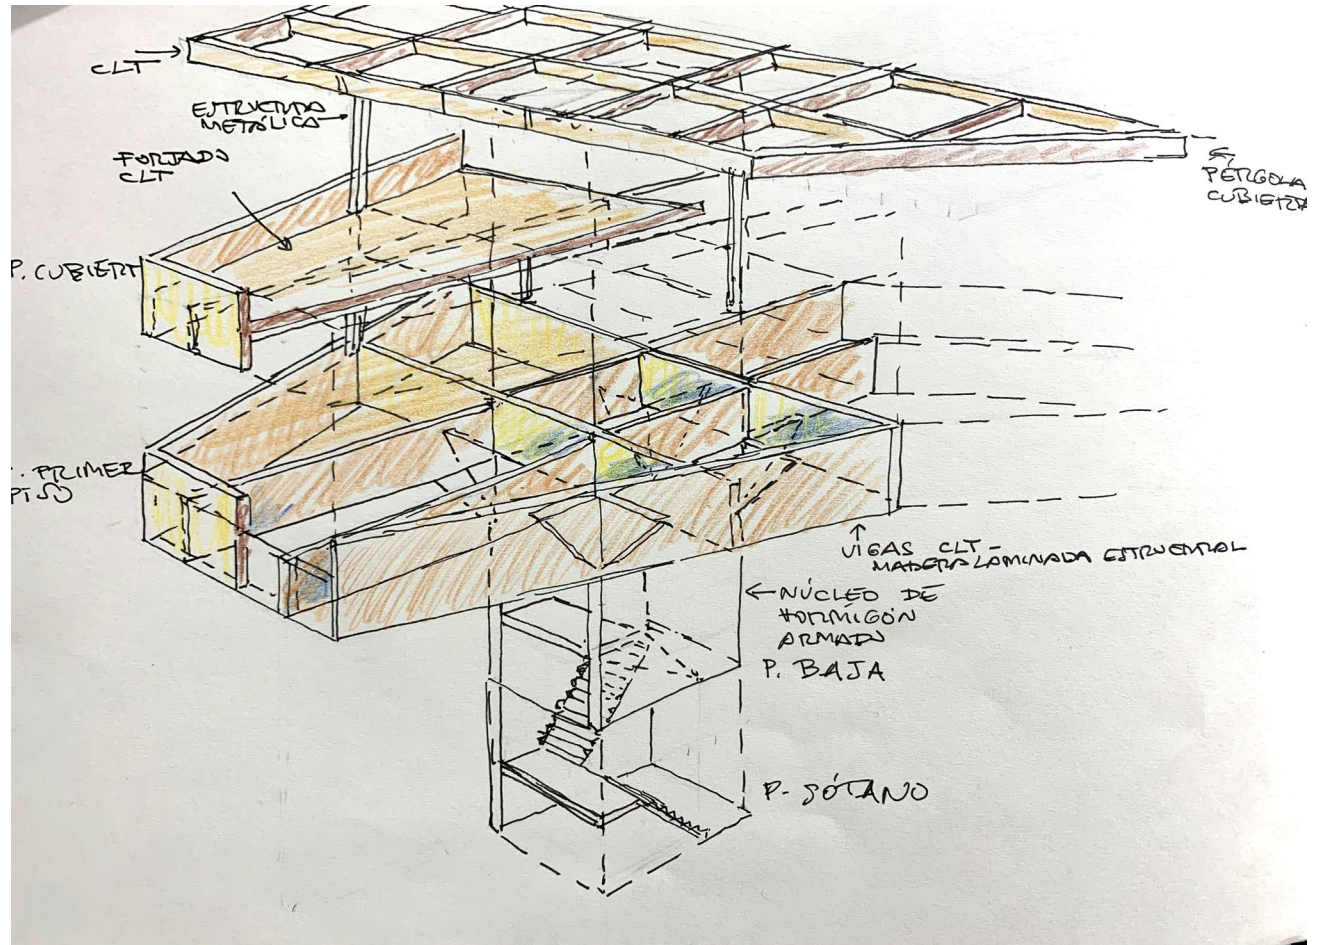 CLT
ESTRUCTURA
METÁLICA
FORJADO
CLT
PÉRGOLA
CUBIERTA
P. CUBIERT
. PRIMER
PISO
VIGAS CLT -
MADERA LAMINADA ESTRUCTURAL
NÚCLEO DE
HORMIGÓN
ARMADO
P. BAJA
P. SÓTANO